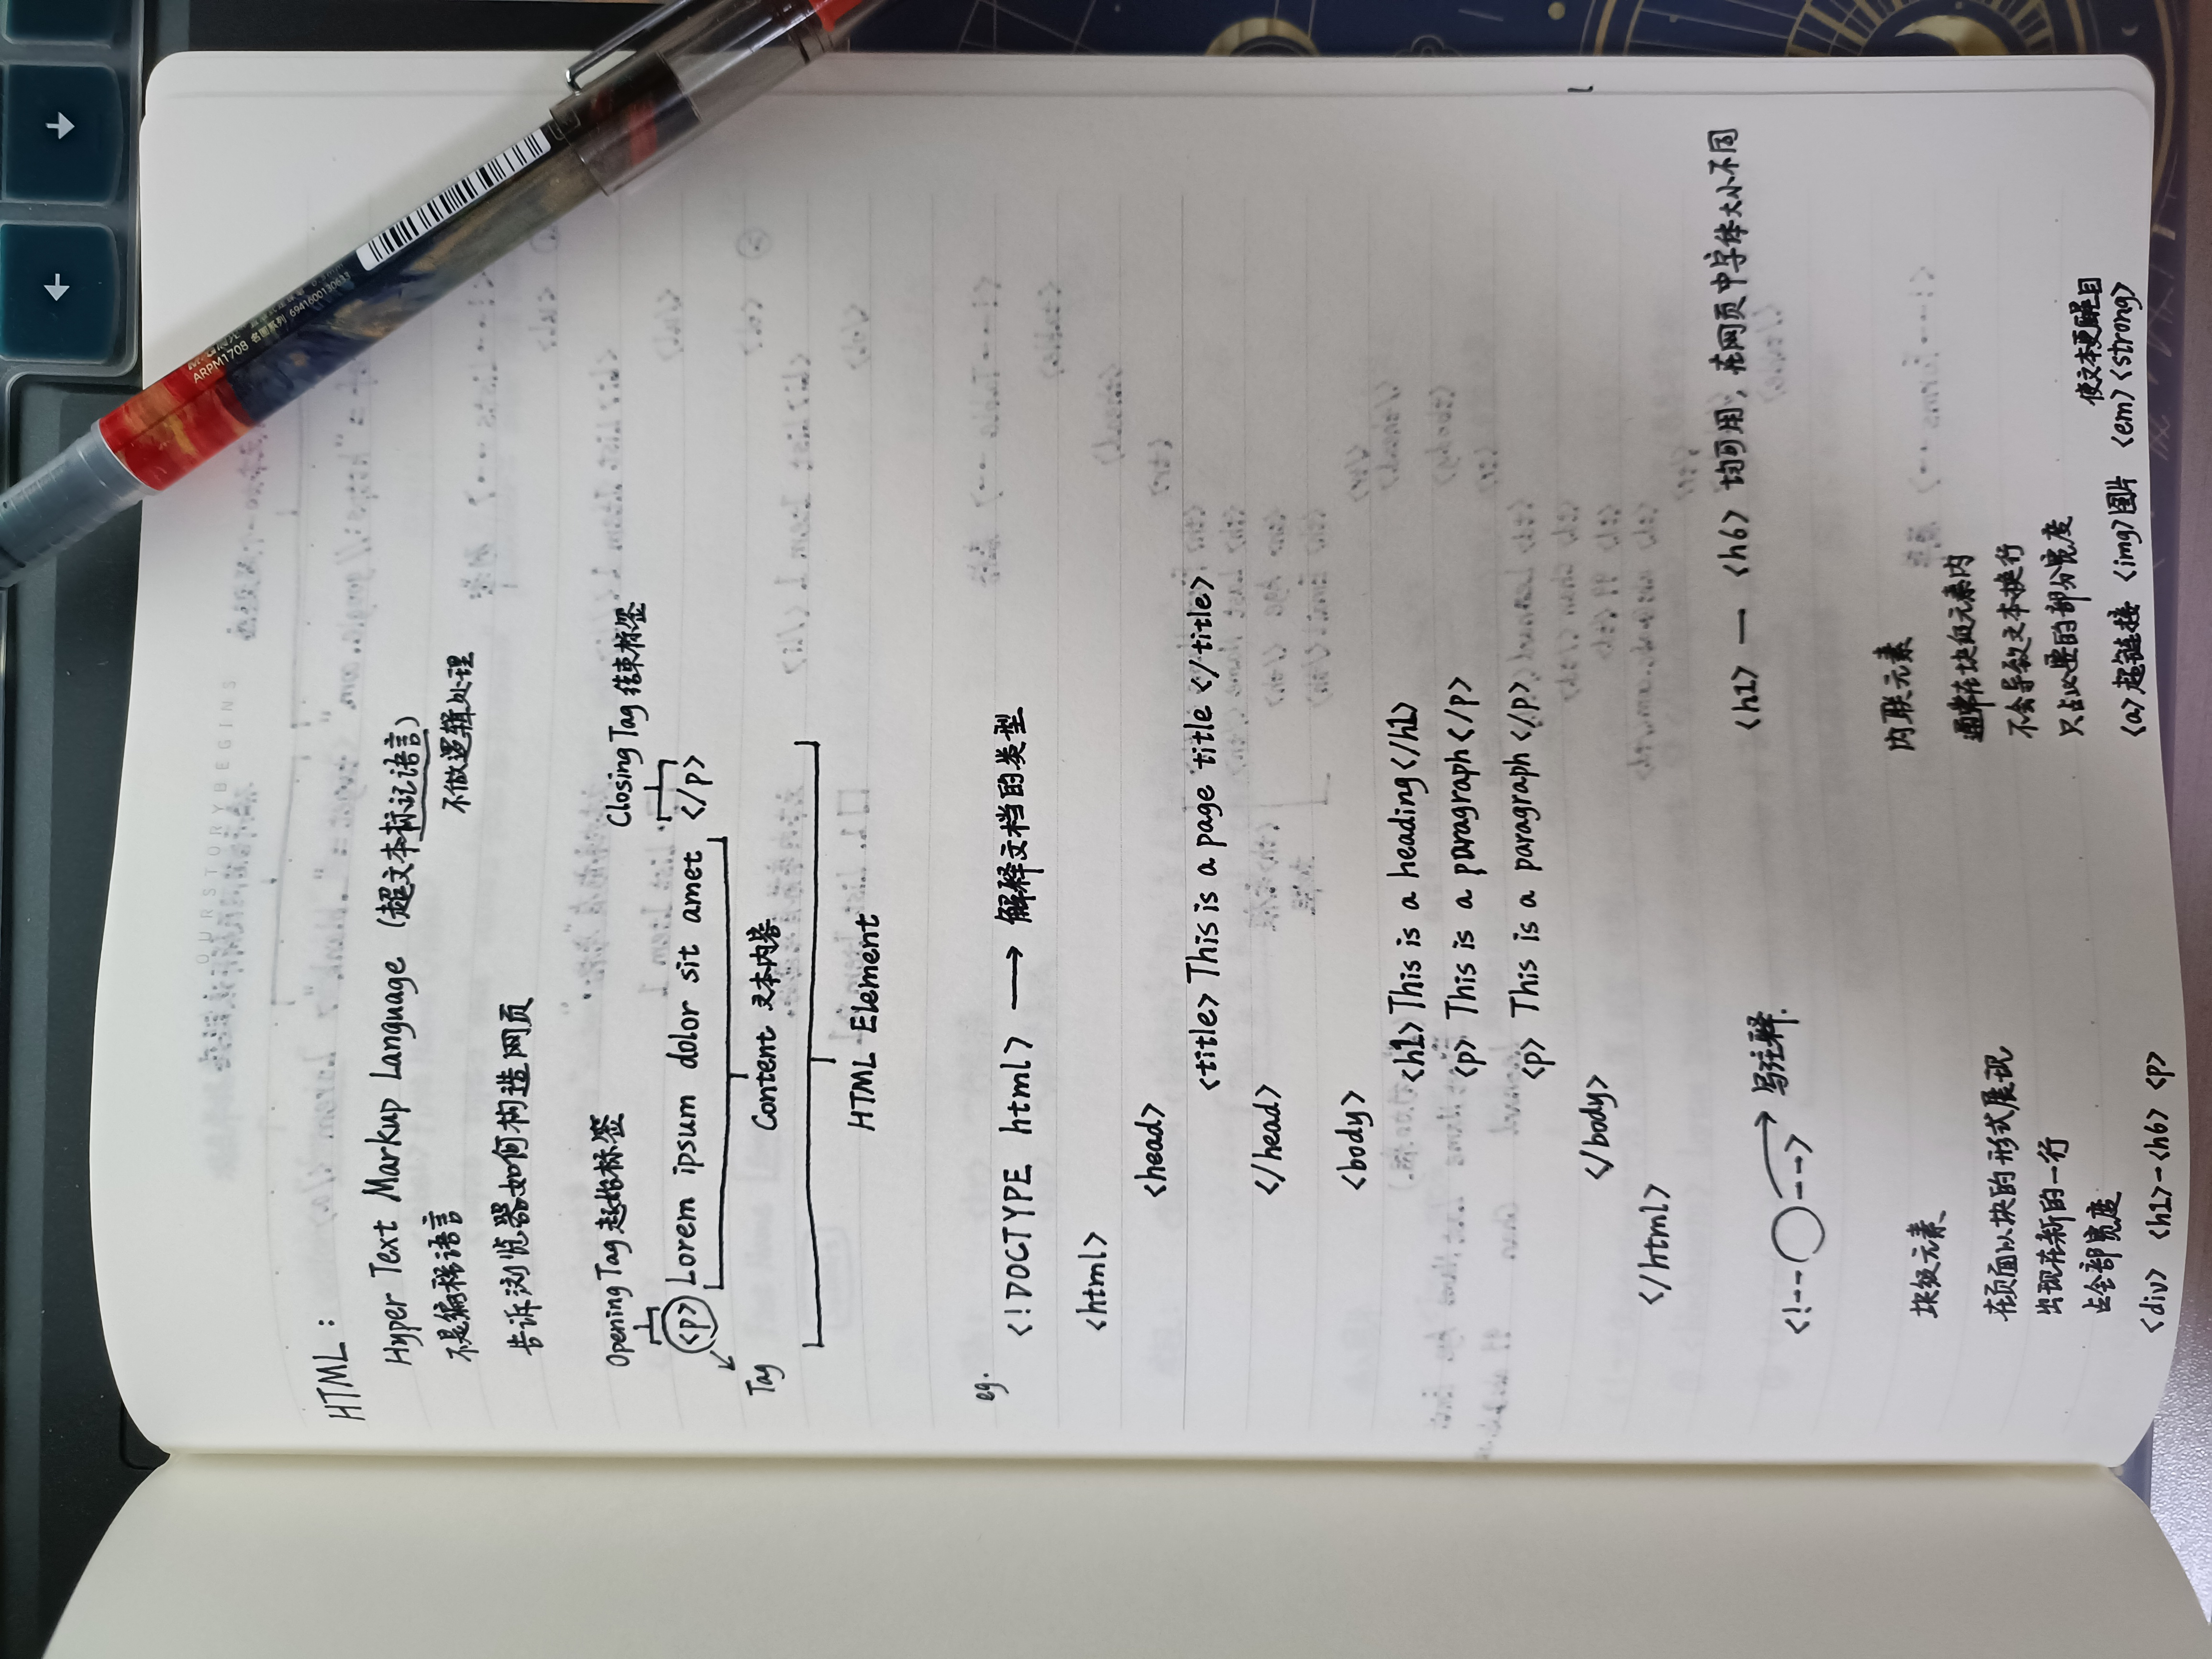 OURSTORYBEGINS
HTML：
Hyper Text Markup Language (超文本标记语言)
不是编程语言
不做逻辑处理
告诉浏览器如何构造网页
Opening Tag 起始标签
Closing Tag 结束标签
<p> Lorem ipsum dolor sit amet </p>
Tag
Content 文本内容
HTML Element
eg.
<!DOCTYPE html> → 解释文档的类型
<html>
<head>
<title> This is a page title </title>
</head>
<body>
<h1> This is a heading </h1>
<p> This is a paragraph </p>
<p> This is a paragraph </p>
</body>
</html>
<h1> — <h6> 均可用，在网页中字体大小不同
<!--○--> 写注释.
块级元素
在页面以块的形式展现
出现在新的一行
占全部宽度
<div> <h1>-<h6> <p>
内联元素
通常在块级元素内
不会导致文本换行
只占必要的部分宽度
使文本更醒目
<a>超链接 <img>图片 <em> <strong>
ARPM1708 名画系列 6941600130633